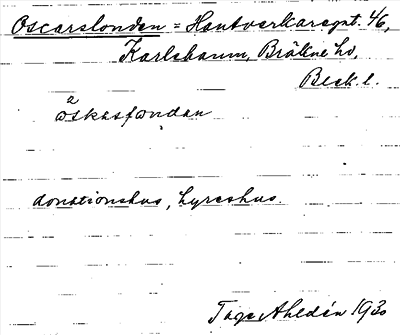 Oscarslonden = Hantverkaregat. 4/6,
Karlshamn, Bräkne hd,
Blek. l.
donationshus, hyreshus.
Tage Ahldén 1930